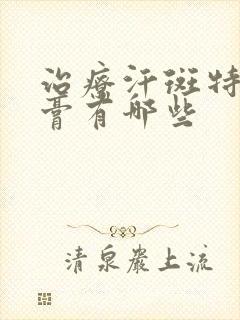 治療汗斑特
膏有哪些
清泉巖上流